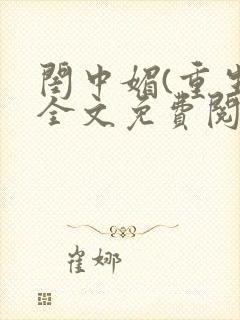 閨中媚(重生
全文免費閱
崔娜